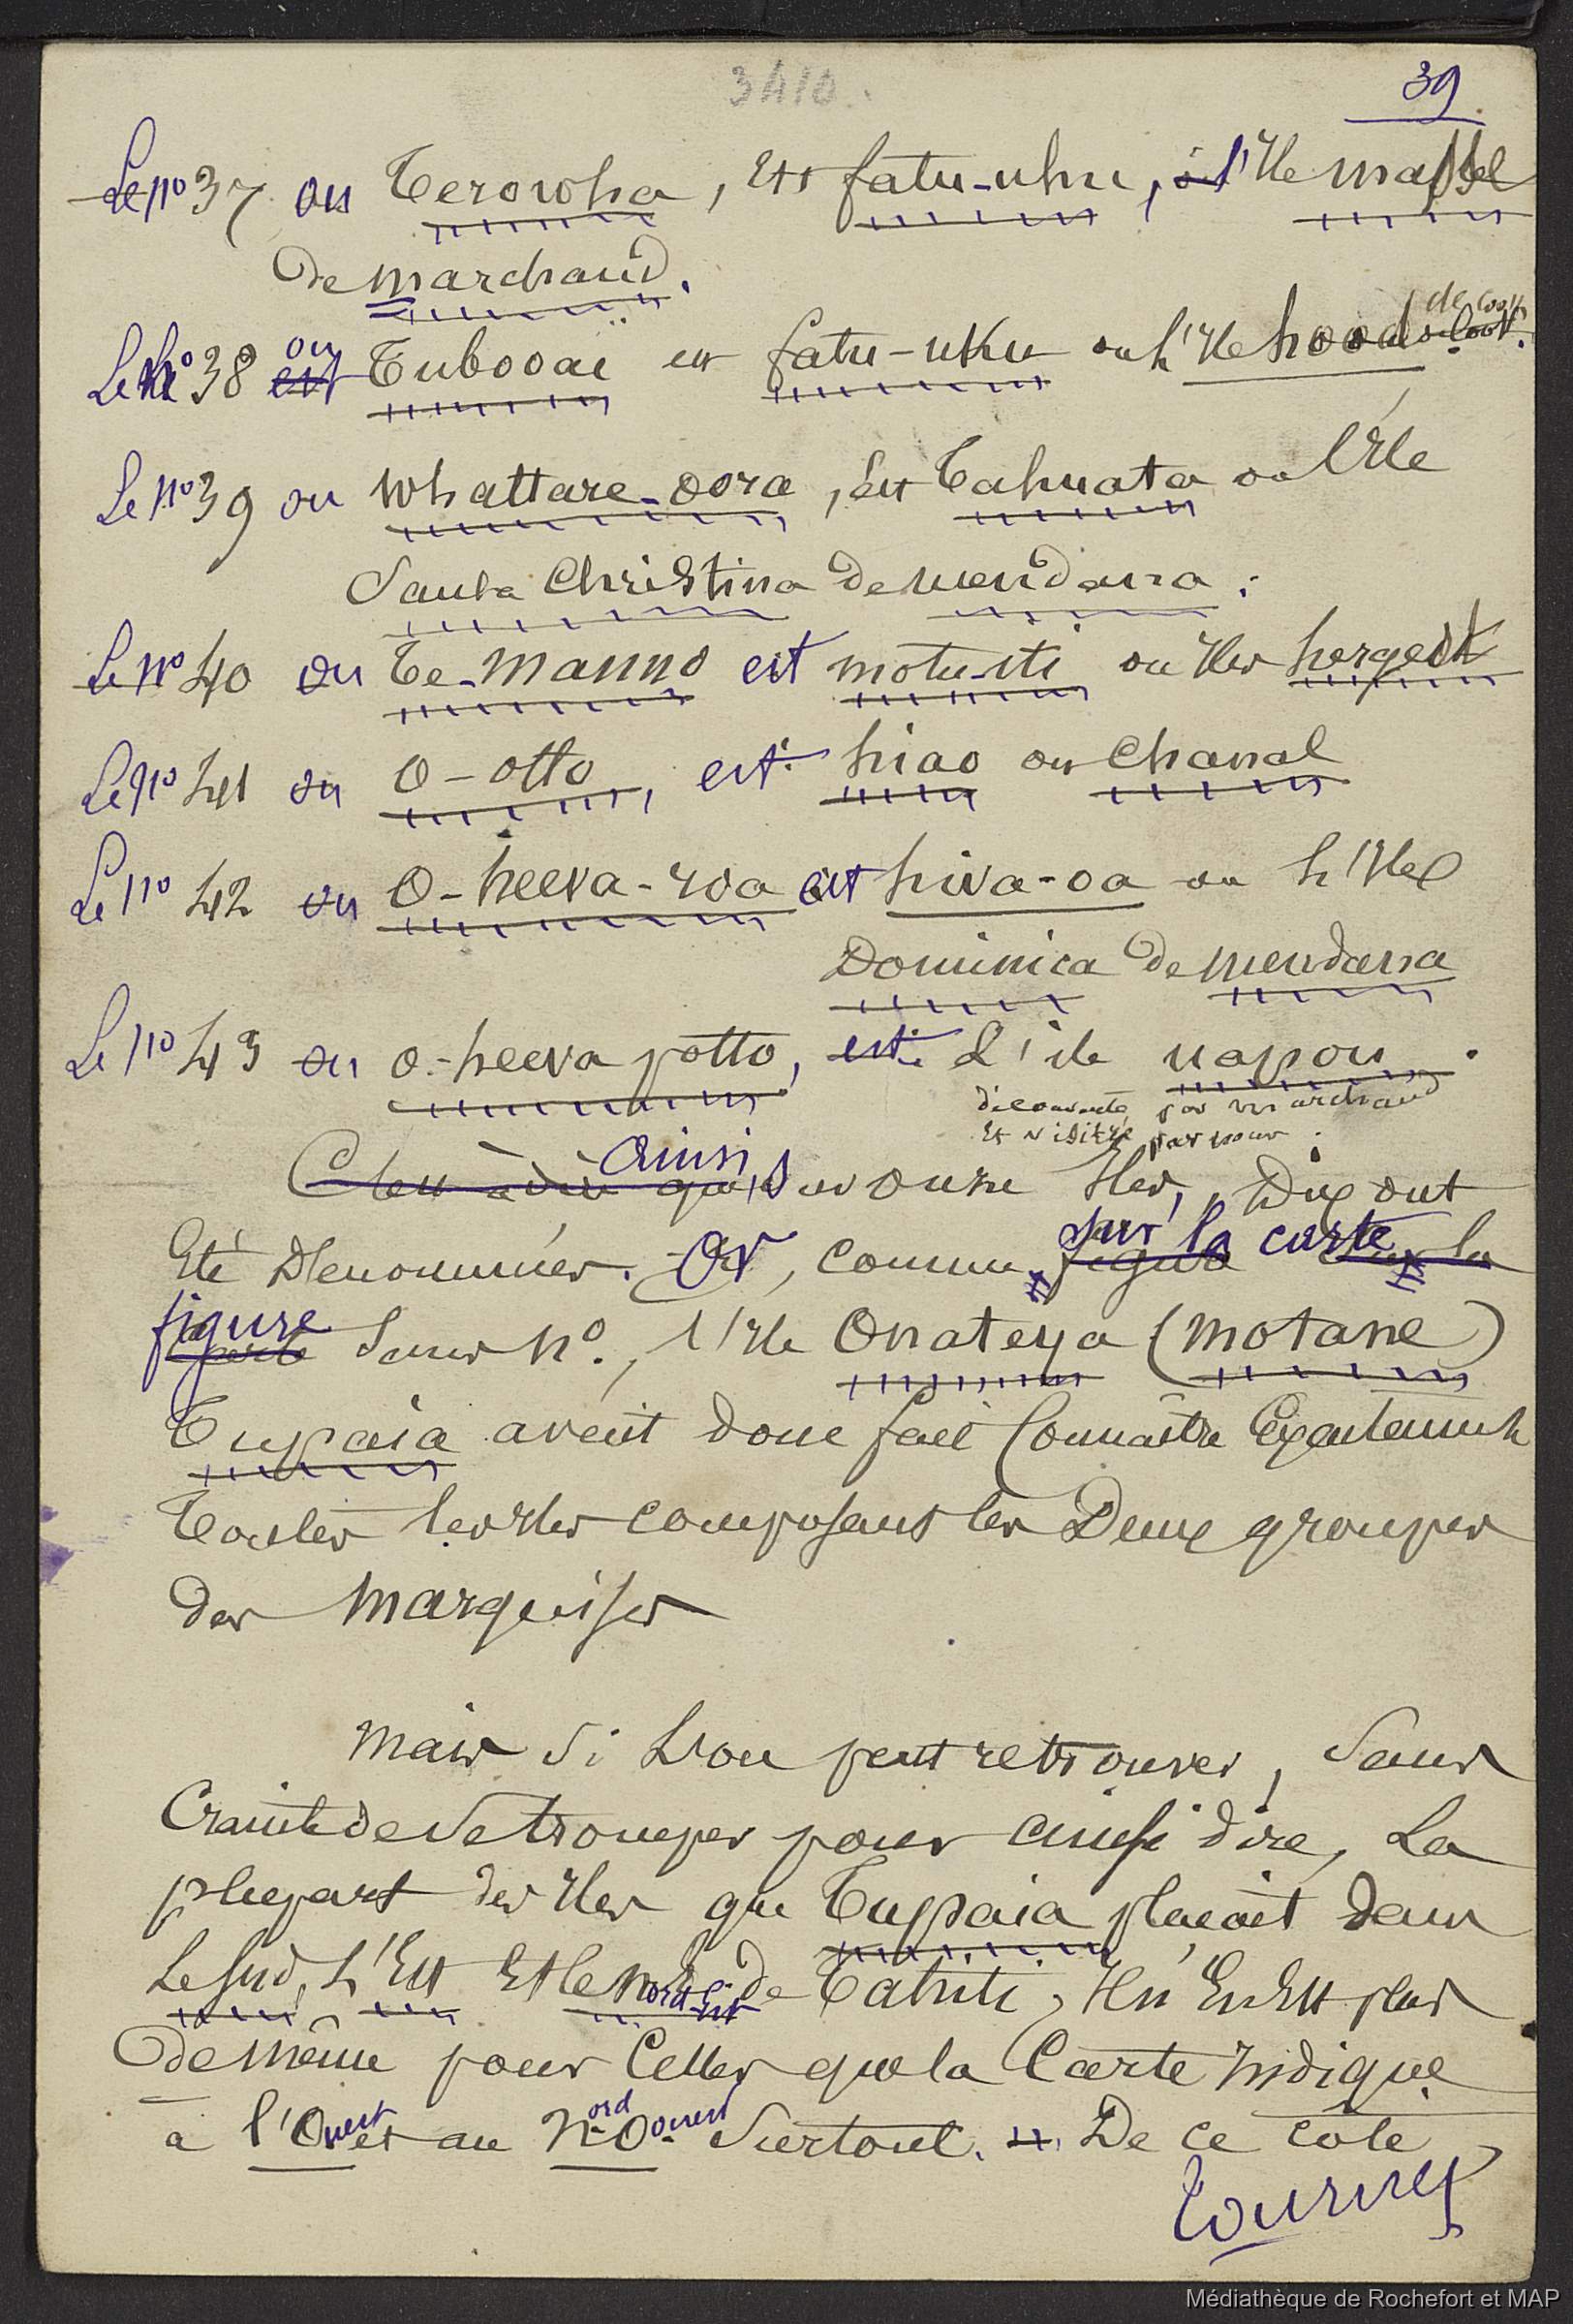 3410.
39
Le n° 37 ou Terowha, Est fatu-uhu, l'Ile masse
de marchand.
Le n° 38 ou Tubooai est fatu-uku ou l'Ile hood de Cook.
Le n° 39 ou Whattare-oora, Est Tahuata ou l'Ile
Santa Christina de mendana.
Le n° 40 ou Te-manno est motu-iti ou Iles hergest
Le n° 41 ou O-otto, est hiao ou Chanal
Le n° 42 ou O-heeva-roa est hiva-oa ou l'Ile
Dominica de mendana
Le n° 43 ou o-heeva potto, est l'ile uapou.
découverte par marchand
Et visitée par nous.
Ainsi, sur onze Iles, Dix ont
Eté Dénommées. Or, comme sur la carte
figure Sans n°., l'Ile Onateya (motane)
Tupaia avait donc fait Connaître Exactement
Toutes les Iles composant les Deux groupes
des marquises
mais Si L'on peut retrouver, Sans
Crainte de Se tromper pour ainsi dire, La
plupart des Iles que Tupaia plaçait dans
Le Sud, L'Est Et le nord-Est de Tahiti, Il n'En Est plus
de même pour Celles que la Carte Indique
a l'Ouest et au Nord Ouest Surtout. De ce côté
tournez
Médiathèque de Rochefort et MAP